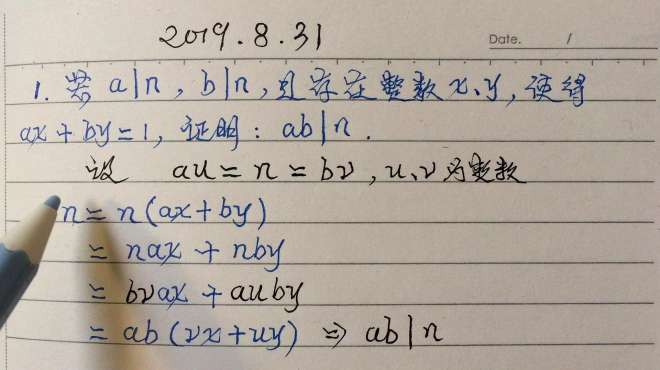 2019.8.31
Date. /
1. 若 a|n, b|n, 且存在整数 x、y, 使得
ax + by = 1, 证明: ab|n.
设 au = n = bv, u、v 为整数
n = n(ax+by)
= nax + nby
= bvax + auby
= ab(vx+uy) ⇒ ab|n